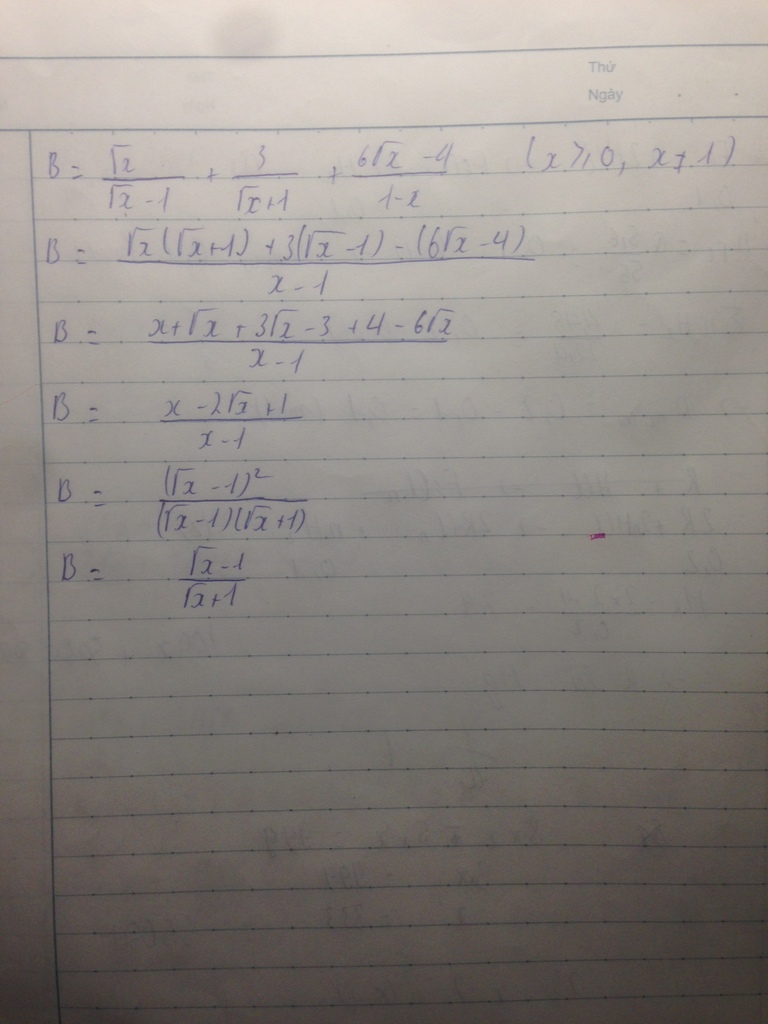 Thứ
Ngày
B = √x/(√x - 1) + 3/(√x+1) + (6√x - 4)/(1-x) (x ≥ 0, x ≠ 1)
B = (√x(√x+1) + 3(√x - 1) - (6√x - 4))/(x - 1)
B = (x + √x + 3√x - 3 + 4 - 6√x)/(x - 1)
B = (x - 2√x + 1)/(x - 1)
B = (√x - 1)²/((√x - 1)(√x + 1))
B = (√x - 1)/(√x + 1)